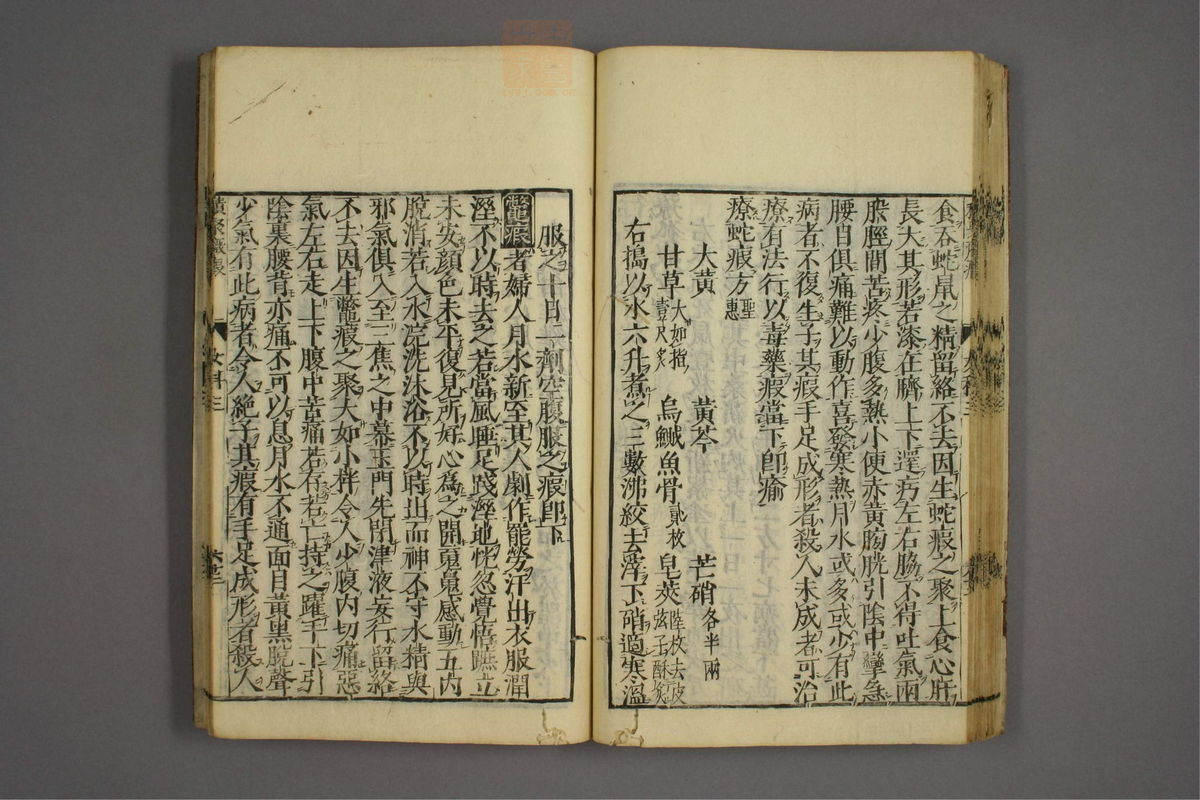 食吞蛇鼠之精留絡不去因生蛇瘕之聚上食心肝
長大其形若漆在臍上下還疠左右脇不得吐氣兩
股脛間苦疼少腹多熱小便赤黃胸胱引陰中攣急
腰目俱痛難以動作喜發寒熱月水或多或少有此
病者不復生子其瘕手足成形者殺人未成者可治
療有法行以毒藥瘕當下卽瘉
療蛇瘕方聖惠
大黃 黃芩 芒硝各半兩
甘草大如指壹尺炙 烏鰂魚骨貳枚 皂莢陸枚去皮弦子酥炙
右搗以水六升煮之三數沸絞去滓下硝適寒溫
服之十日一劑空腹服之瘕卽下
鼈瘕者婦人月水新至其人劇作罷勞汗出衣服潤
溼不以時去之若當風睡足踐溼地恍忽覺悟蹠立
未安顏色未平復見所好心爲之開蒐䰟感動五內
脫消若入水浣洗沐浴不以時出而神不守水精與
邪氣俱入至三焦之中幕玉門先閉津液妄行留絡
不去因生鼈瘕之聚大如小柈令人少腹內切痛惡
氣左右走上下腹中苦痛若存若亡持之躍手下引
陰裏腰背亦痛不可以息月水不通面目黃黑脫聲
少氣有此病者令人絕子其瘕有手足成形者殺人
女科三